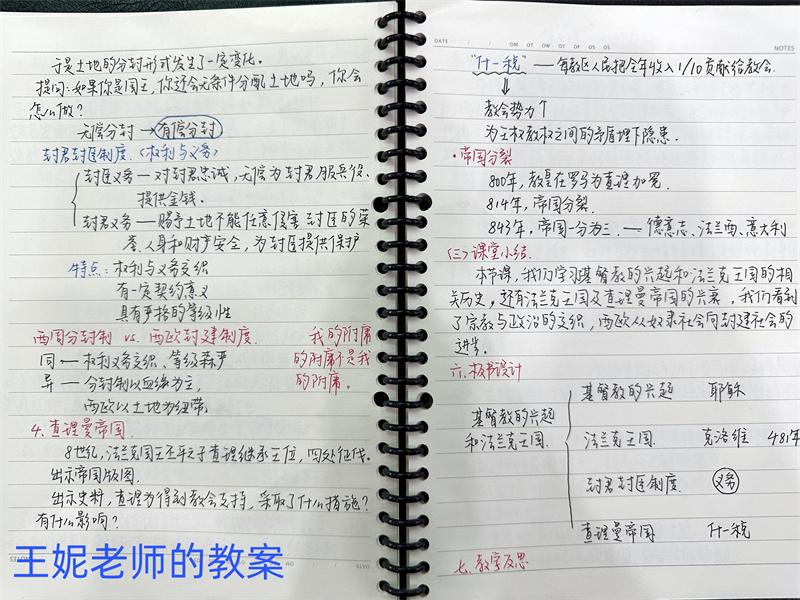 于是土地的分封形式发生了一定变化.
提问:如果你是国王,你还会无条件分配土地吗,你会
怎么做?
无偿分封→有偿分封
封君封臣制度.(权利与义务)
封臣义务—对封君忠诚,无偿为封君服兵役、
提供金钱.
封君义务—赐予土地不能任意侵害封臣的荣
誉、人身和财产安全,为封臣提供保护
特点:权利与义务交织
有一定契约意义
具有严格的等级性
西周分封制 vs. 西欧封建制度. 我的附庸
同—权利义务交织、等级森严 的附庸不是我
异—分封制以血缘为主, 的附庸.
西欧以土地为纽带.
4.查理曼帝国
8世纪,法兰克国王丕平之子查理继承王位,四处征伐.
出示帝国版图.
出示史料,查理为得到教会支持,采取了什么措施?
有什么影响?
NOTES
DATE
王妮老师的教案
DATE / / OM OT OW OT OF OS OS NOTES
"什一税"——每教区人民把全年收入1/10贡献给教会.
⇓
教会势力↑
为王权教权之间的矛盾埋下隐患.
·帝国分裂
800年,教皇在罗马为查理加冕.
814年,帝国分裂.
843年,帝国一分为三.—德意志、法兰西、意大利
(三)课堂小结.
本节课,我们学习基督教的兴起和法兰克王国的相
关历史,还有法兰克王国及查理曼帝国的兴衰,我们看到
了宗教与政治的交织,西欧从奴隶社会向封建社会的
进步.
六.板书设计
基督教的兴起 耶稣
基督教的兴起
和法兰克王国. 法兰克王国 克洛维 481年
封君封臣制度. 义务
查理曼帝国 什一税
七.教学反思